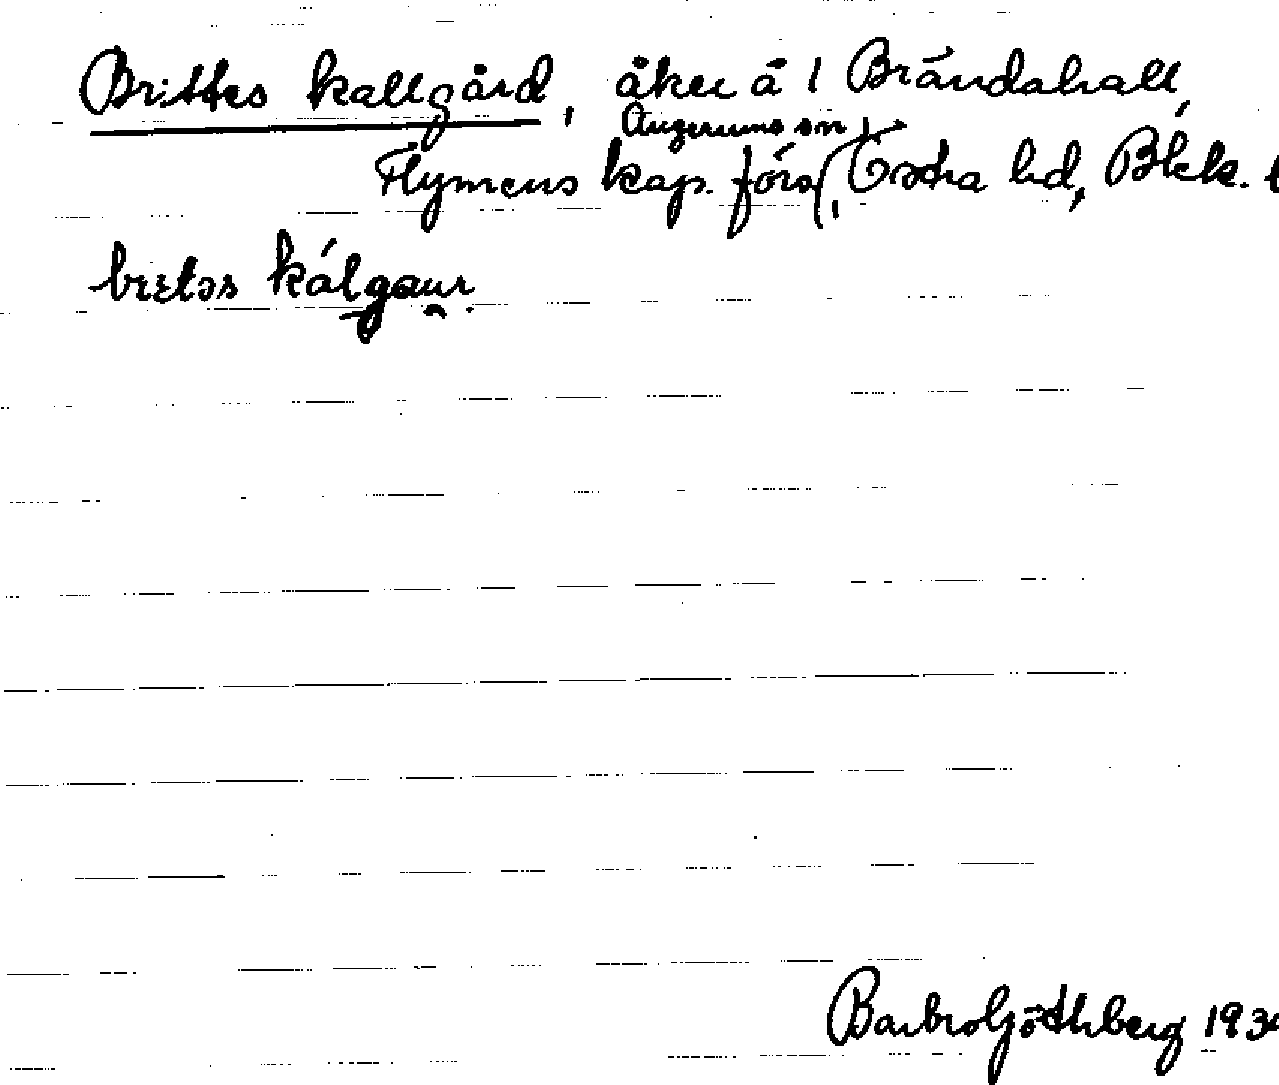 Brittes kallgård, åker å 1 Brändahall,
Augerums sn
Flymens kap. förs, Östra hd, Blek. l
bretəs kálgaur.
Barbro Göthberg 193